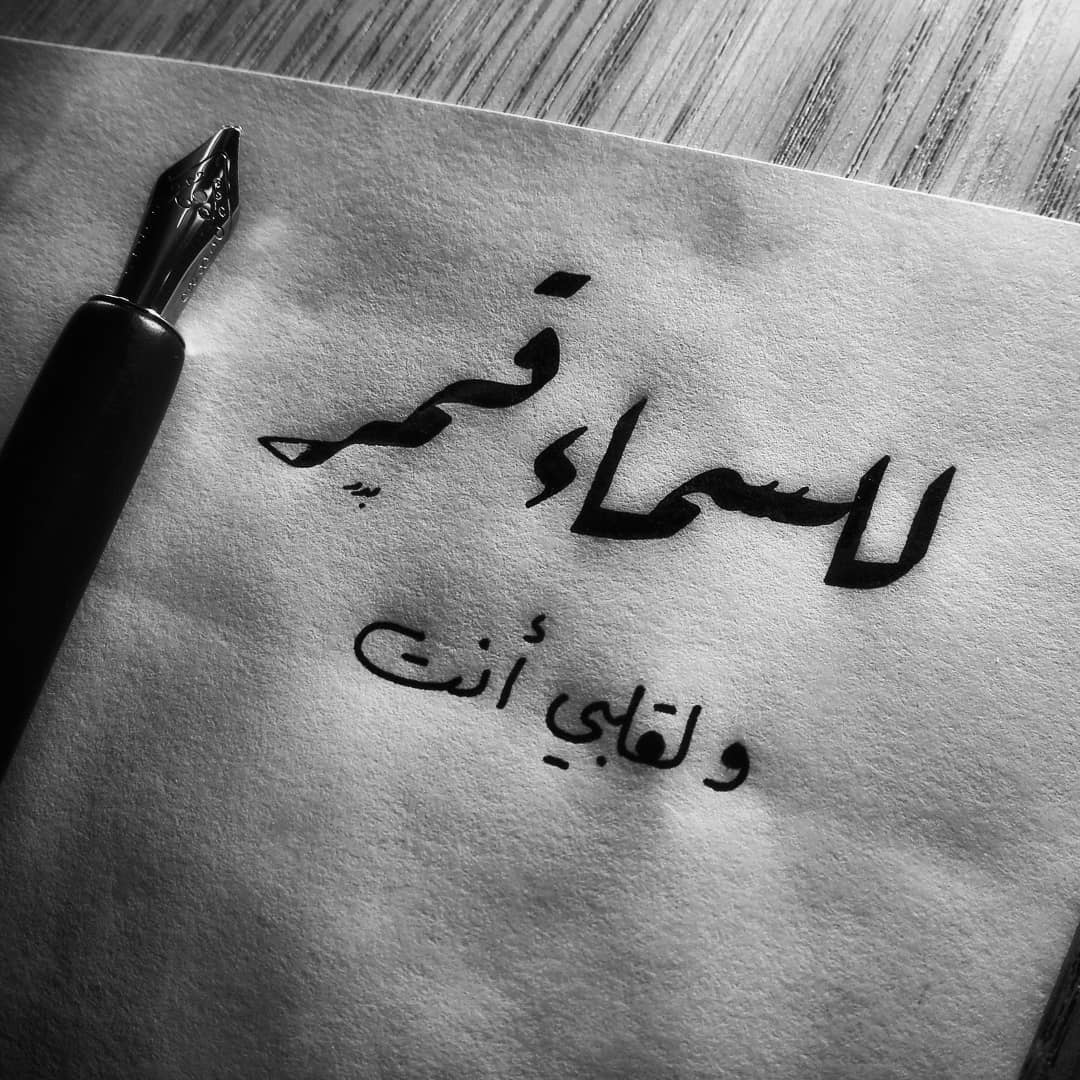 للسماء قمر
بدر
ولقلبي أنت